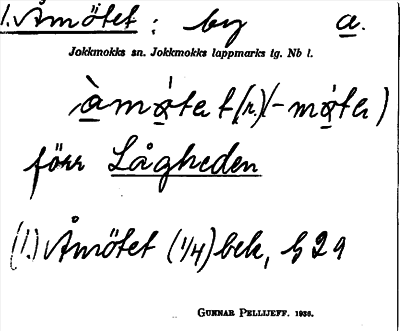 1. Åmötet : by a.
Jokkmokks sn. Jokkmokks lappmarks tg. Nb l.
àmø̀tet (r.) (-mø̀ter)
förr Lågheden
(1.) Åmötet (1/4) bek, b 29
GUNNAR PELLIJEFF. 1936.